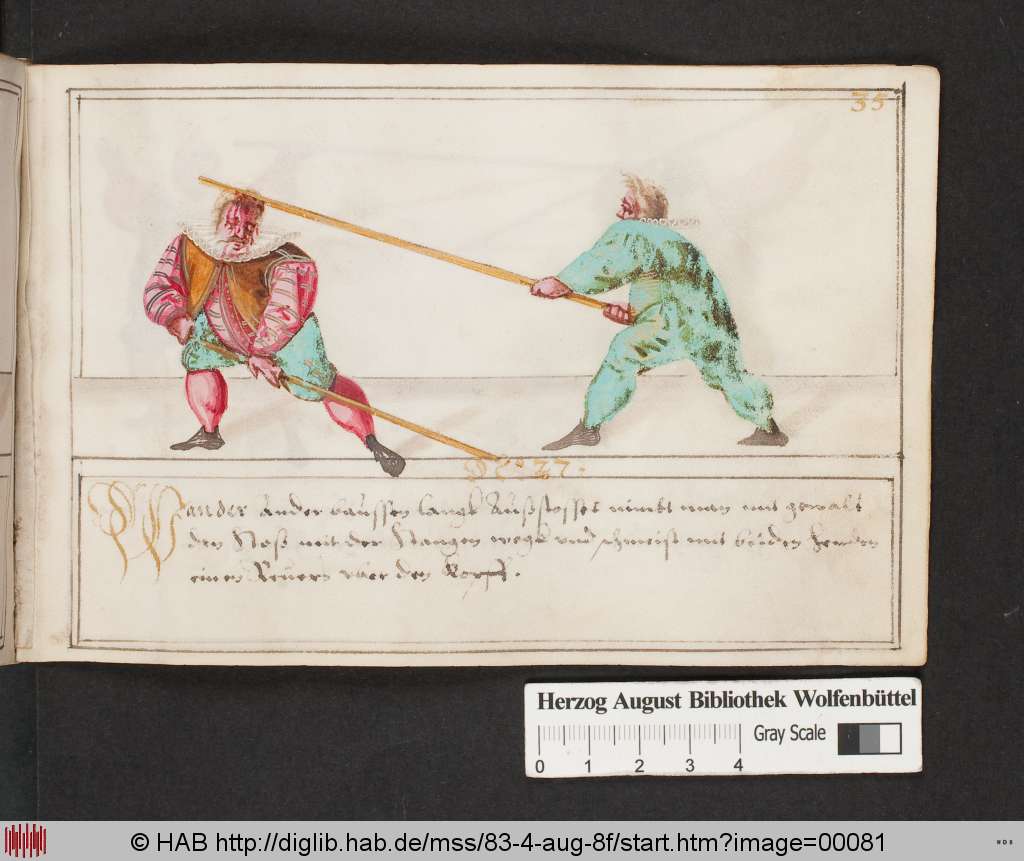 35
No 27.
Wan der Ander baussen langs Außstosset nimbt man mit gewalt
den Stoß mit der Stangen wegk und schmeist mit beiden henden
einen Revers uber den Kopff.
Herzog August Bibliothek Wolfenbüttel
Gray Scale
0 1 2 3 4
© HAB http://diglib.hab.de/mss/83-4-aug-8f/start.htm?image=00081